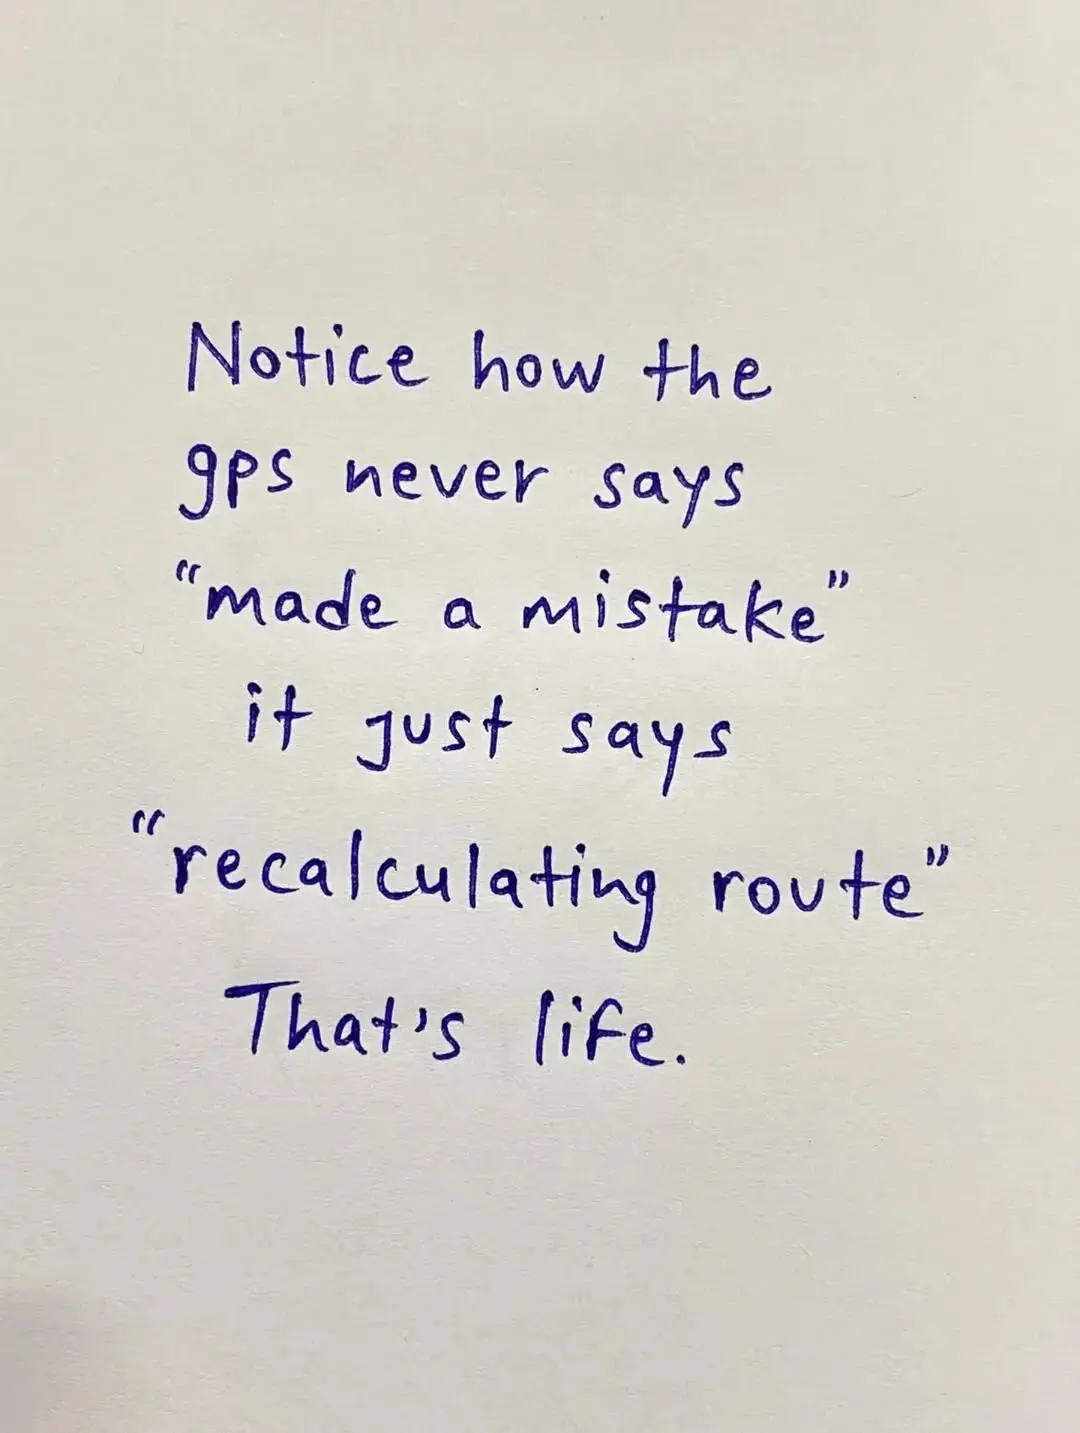 Notice how the
gps never says
“made a mistake”
it just says
“recalculating route”
That's life.